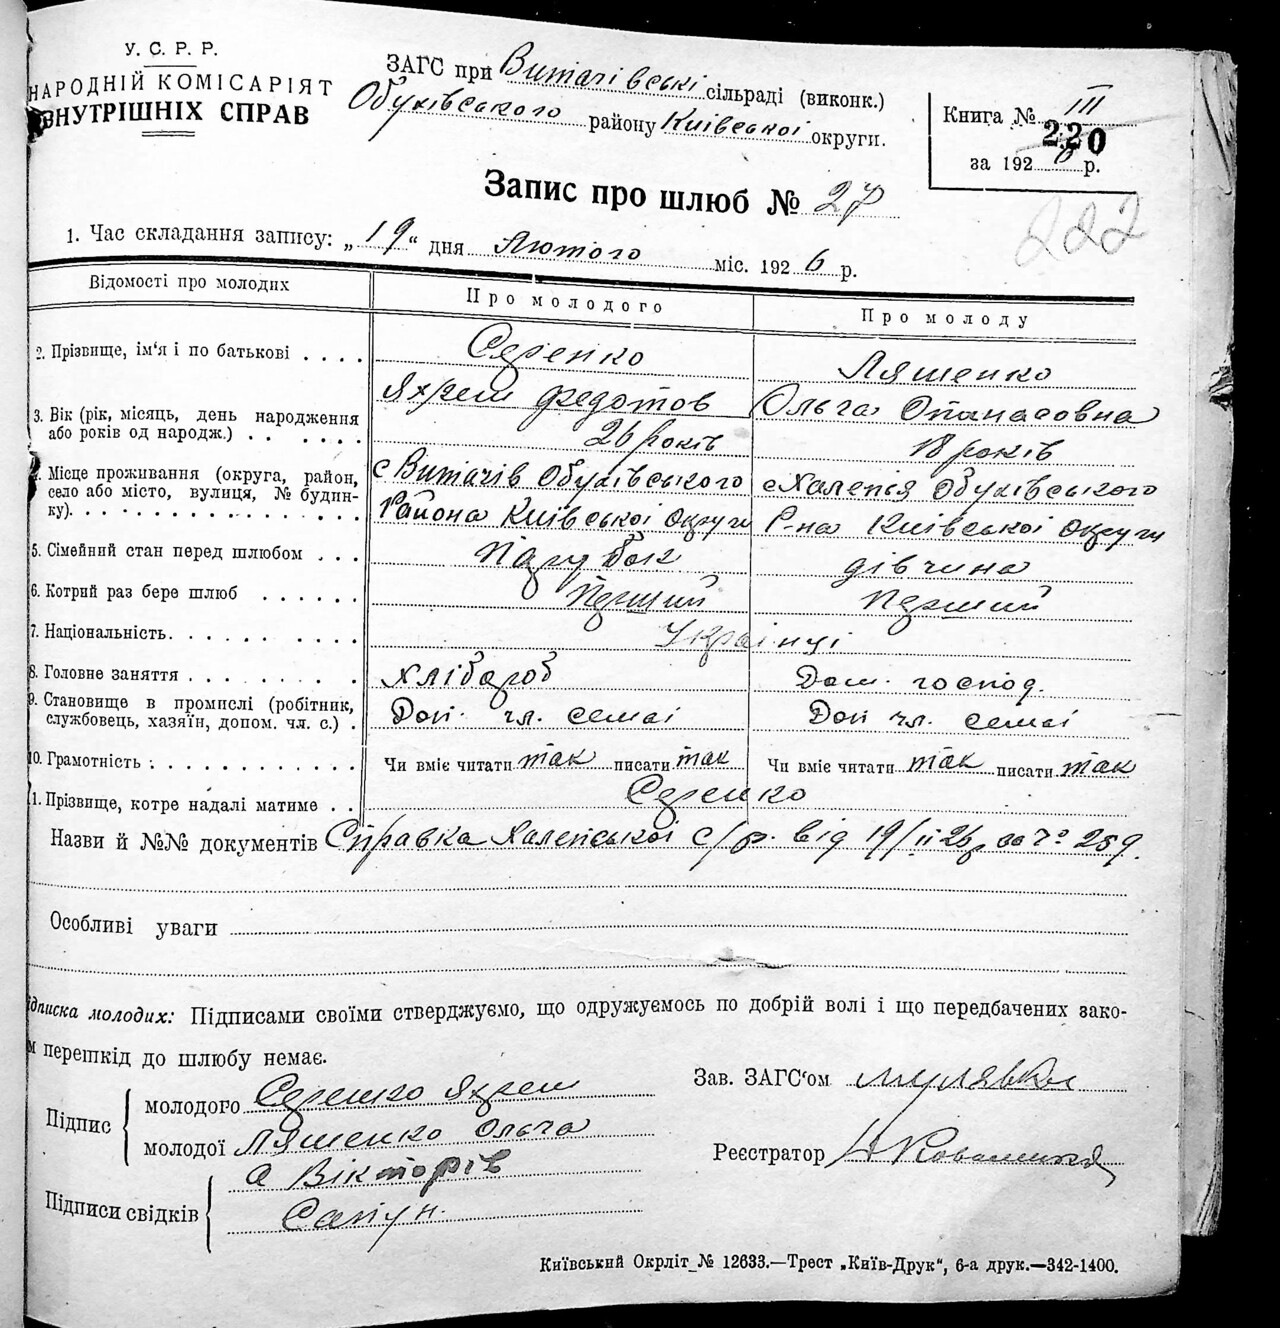 У. С. Р. Р.
НАРОДНІЙ КОМІСАРІЯТ
ВНУТРІШНІХ СПРАВ
ЗАГС при Витачівські сільраді (виконк.)
Обухівського району Київської округи.
Книга № III
220
за 1926 р.
222
Запис про шлюб № 27
1. Час складання запису: „19“ дня Лютого міс. 1926 р.
Відомості про молодих
Про молодого
Про молоду
2. Прізвище, ім‘я і по батькові . . . .
Серенко
Ляшенко
Яхрем Федотов
Ольга Опанасовна
3. Вік (рік, місяць, день народження
або років од народж.) . . . . . .
26 років
18 років
Місце проживання (округа, район,
село або місто, вулиця, № будин-
ку). . . . . . . . . . . . . . . .
с Витачів Обухівського
с Халепья Обухівського
Района Київської Округи
Р-на Київської Округи
5. Сімейний стан перед шлюбом . . .
Парубок
дівчина
6. Котрий раз бере шлюб . . . . . .
Перший
Перший
7. Національність. . . . . . . . . .
Українці
8. Головне заняття . . . . . . . . .
Хлібороб
Дом. господ.
9. Становище в промислі (робітник,
службовець, хазяїн, допом. чл. с.) .
Доп. чл. семаї
Доп чл. семаї
10. Грамотність . . . . . . . . . . . .
Чи вміє читати так писати так
Чи вміє читати так писати так
11. Прізвище, котре надалі матиме . .
Серенко
Назви й №№ документів Справка Халепської с/р. від 19/II 26р за № 259.
Особливі уваги
ідписка молодих: Підписами своїми стверджуємо, що одружуємось по добрій волі і що передбачених зако-
м перешкід до шлюбу немає.
Підпис
молодого Серенко Яхрем
молодої Ляшенко Ольга
Зав. ЗАГС‘ом
Реєстратор
Підписи свідків
а Вікторів
Сапун.
Київський Окрліт № 12633.—Трест „Київ-Друк“, 6-а друк.—342-1400.